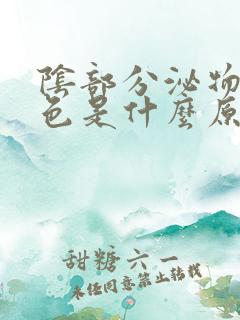 陰部分泌物
色是什麼原
甜糖六一
未经同意禁止转载